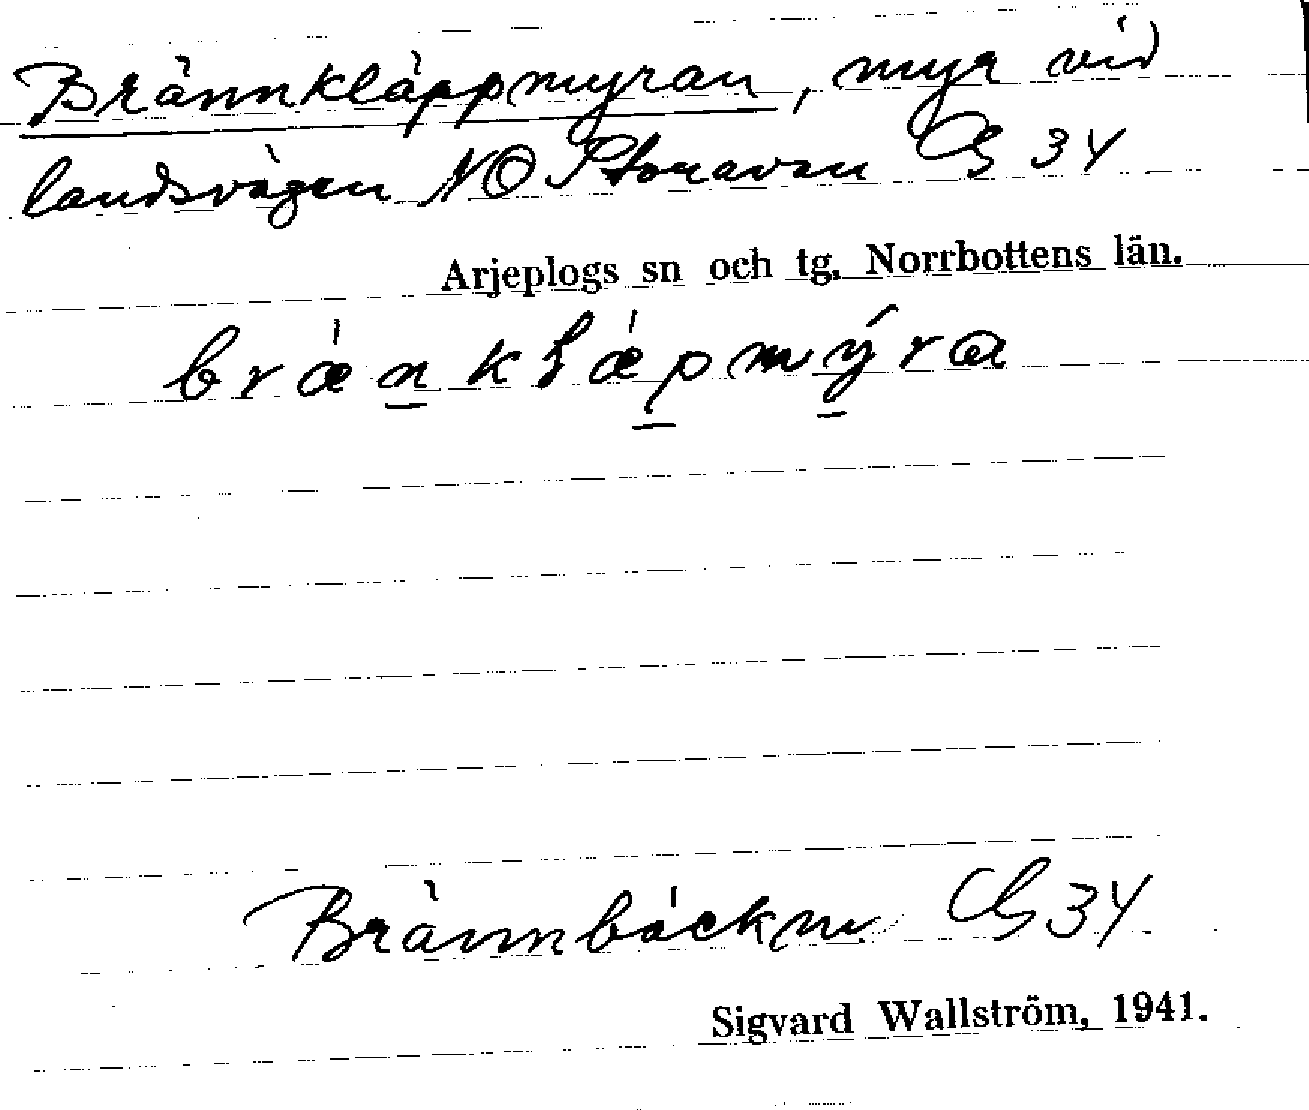 Brännkläppmyran, myr vid
landsvägen NO Storavan G 34
Arjeplogs sn och tg, Norrbottens län.
brǽnkłǽpmýra
Brännbäckm G 34
Sigvard Wallström, 1941.